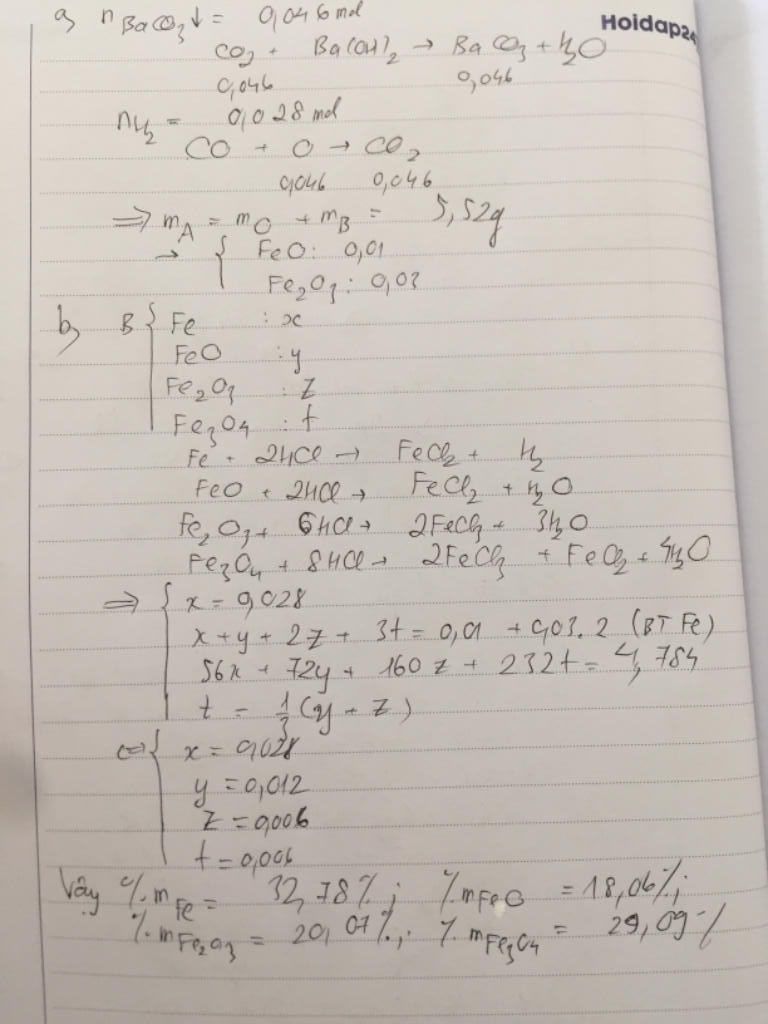 Hoidap24
a, n BaCO₃↓ = 0,046 mol
CO₂ + Ba(OH)₂ → BaCO₃ + H₂O
0,046 0,046
nH₂ = 0,028 mol
CO + O → CO₂
0,046 0,046
=> mA = mO + mB = 5,52g
→ { FeO: 0,01
Fe₂O₃: 0,03
b, B { Fe : x
FeO : y
Fe₂O₃ : z
Fe₃O₄ : t
Fe + 2HCl → FeCl₂ + H₂
FeO + 2HCl → FeCl₂ + H₂O
Fe₂O₃ + 6HCl → 2FeCl₃ + 3H₂O
Fe₃O₄ + 8HCl → 2FeCl₃ + FeCl₂ + 4H₂O
=> { x = 0,028
x + y + 2z + 3t = 0,01 + 0,03.2 (BT Fe)
56x + 72y + 160z + 232t = 4,784
t = 1/3 (y + z)
<=> { x = 0,028
y = 0,012
z = 0,006
t = 0,006
Vậy %mFe = 32,78%; %mFeO = 18,06%;
%mFe₂O₃ = 20,07%; %mFe₃O₄ = 29,09%